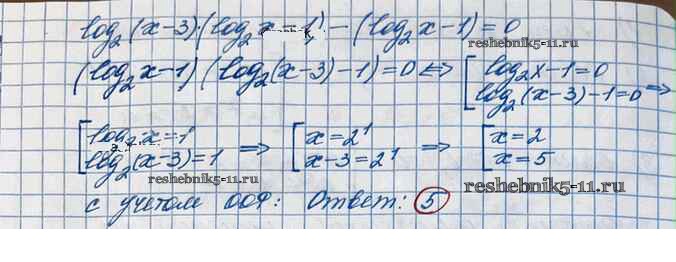 log₂(x-3)·(log₂x-1) - (log₂x-1)=0
reshebnik5-11.ru
(log₂x-1)(log₂(x-3)-1)=0 ⇔ [log₂x-1=0
log₂(x-3)-1=0 ⇒
[log₂x=1 ⇒ [x=2¹ ⇒ [x=2
log₂(x-3)=1 x-3=2¹ x=5
reshebnik5-11.ru reshebnik5-11.ru
с учетом ООФ: Ответ: 5